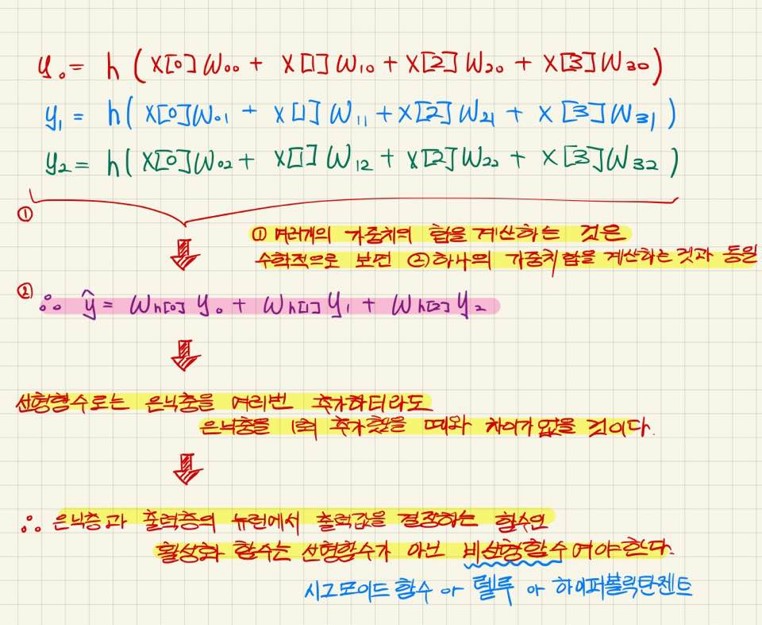 y₀ = h ( x[0]w₀₀ + x[1]w₁₀ + x[2]w₂₀ + x[3]w₃₀)
y₁ = h( x[0]w₀₁ + x[1]w₁₁ + x[2]w₂₁ + x[3]w₃₁ )
y₂ = h( x[0]w₀₂ + x[1]w₁₂ + x[2]w₂₂ + x[3]w₃₂ )
①
① 여러개의 가중치의 합을 계산하는 것은
수학적으로 보면 ②하나의 가중치합을 계산하는것과 동일
② ∴ ŷ = wh[0] y₀ + wh[1] y₁ + wh[2] y₂
선형함수로는 은닉층을 여러번 추가하더라도
은닉층을 1회 추가했을 때와 차이가 없을 것이다.
∴ 은닉층과 출력층의 뉴런에서 출력값을 결정하는 함수인
활성화 함수는 선형함수가 아닌 비선형함수여야한다.
시그모이드 함수 or 렐루 or 하이퍼볼릭탄젠트